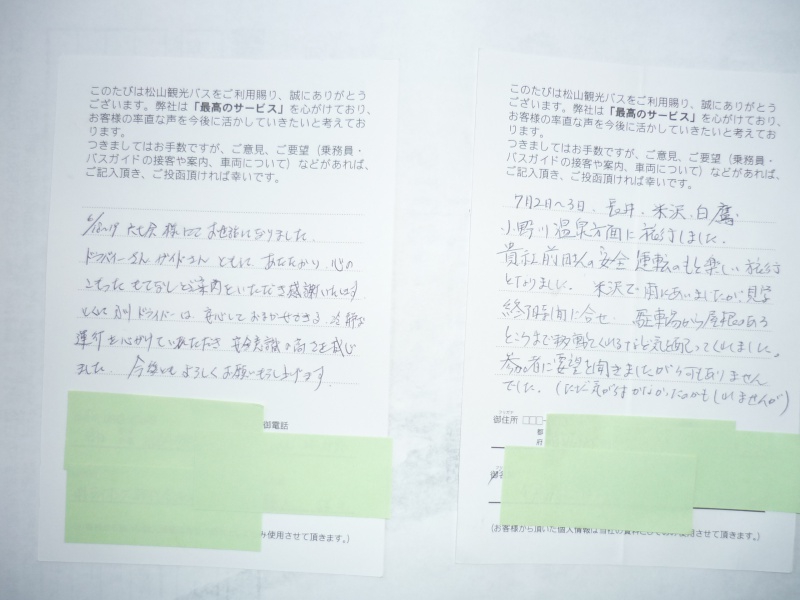 このたびは松山観光バスをご利用賜り、誠にありがとう
ございます。弊社は「最高のサービス」を心がけており、
お客様の率直な声を今後に活かしていきたいと考えてお
ります。
つきましてはお手数ですが、ご意見、ご要望（乗務員・
バスガイドの接客や案内、車両について）などがあれば、
ご記入頂き、ご投函頂ければ幸いです。
様にて お世話になりました。
ドライバーさん ガイドさん ともに、あたたかい 心の
こもった もてなしと案内をいただき感謝いたします
ドライバーは 安心して おまかせできる 冷静な
運行を心がけていただき 安全意識の高さを感じ
ました 今後ともよろしくお願いもうしあげます。
御電話
み使用させて頂きます。）
このたびは松山観光バスをご利用賜り、誠にありがとう
ございます。弊社は「最高のサービス」を心がけており、
お客様の率直な声を今後に活かしていきたいと考えてお
ります。
つきましてはお手数ですが、ご意見、ご要望（乗務員・
バスガイドの接客や案内、車両について）などがあれば、
ご記入頂き、ご投函頂ければ幸いです。
7月2日〜3日、長井、米沢、白鷹、
小野川温泉方面に旅行しました。
貴社前田さんの安全運転のもと楽しい旅行
となりました。米沢で雨にあいましたが、見学
終了時間に合せ、駐車場から屋根のある
ところまで移動してくれるなど気を配ってくれました。
参加者に要望を聞きましたが何もありません
でした。（ただ気がつかなかったのかもしれませんが）
御住所 □□□-
都
府
御
（お客様から頂いた個人情報は当社の資料としてのみ使用させて頂きます。）